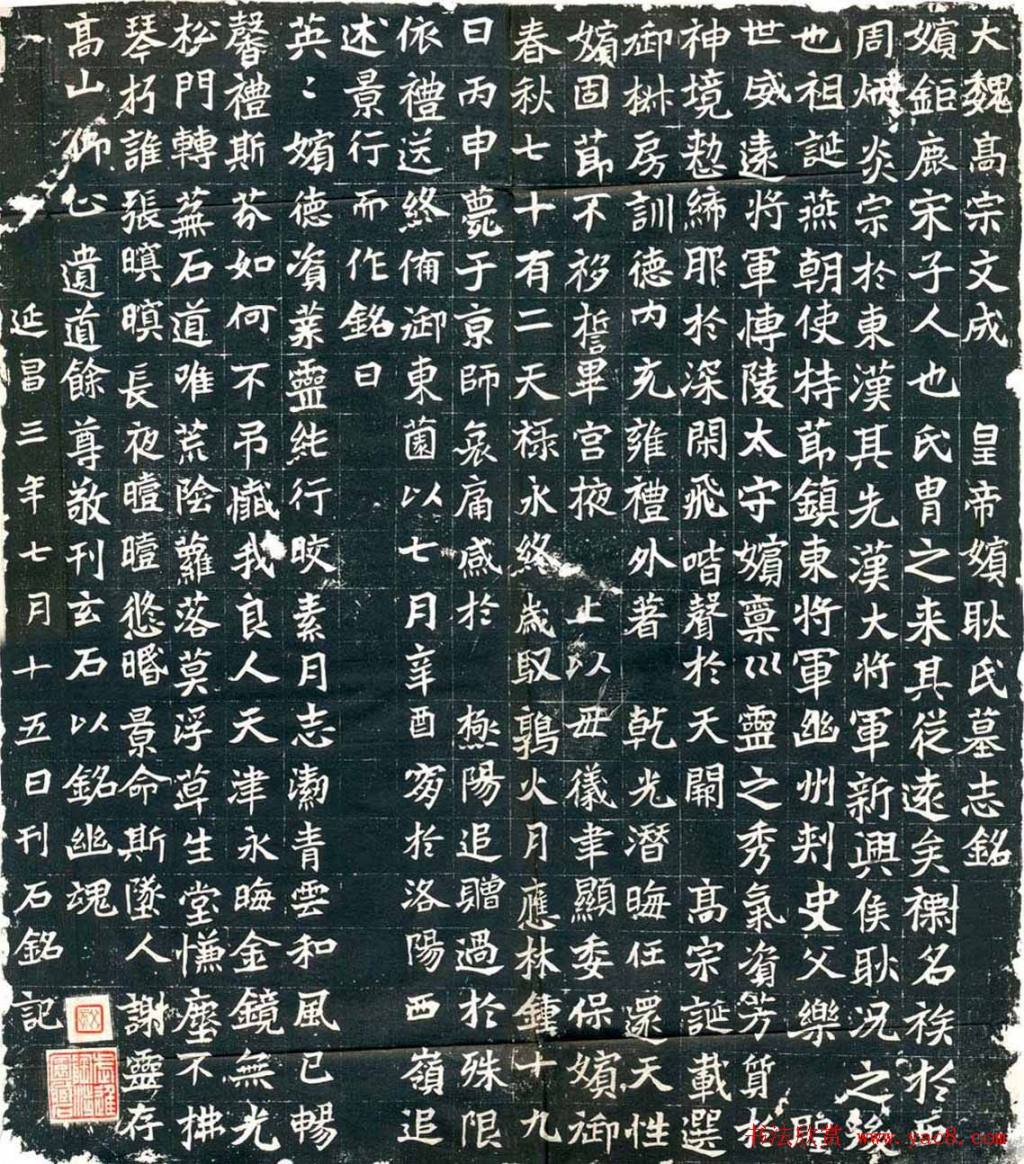 大魏高宗文成皇帝嬪耿氏墓志銘
嬪鉅鹿宋子人也氏胄之来其從遠矣禰名族於西
周炳炎宗於東漢其先漢大將軍新興侯耿況之後
也祖誕燕朝使持莭鎮東將軍幽州刾史父樂
世威遠將軍慱陵太守嬪禀巛靈之秀氣資芳質於
神境懃締服於深閑飛喈聲於天闈高宗誕載選
御椒房訓德內充雍禮外著乹光潛晦任還天性
嬪固莭不移誓畢宮掖上以毋儀聿顯委保嬪御
春秋七十有二天禄永終歲馭鶉火月應林鍾十九
日丙申薨于京師哀痛感於極陽追贈過於殊限
依禮送終俻御東薗以七月辛酉窆於洛陽西嶺追
述景行而作銘曰
英〻嬪德資業靈純行皎素月志潔青雲和風已暢
馨禮斯芬如何不吊殲我良人天津永晦金鏡無光
松門轉蕪石道唯荒陰蘿落莫浮草生堂慊塵不拂
琴朽誰張暝暝長夜曀曀悠昏景命斯墜人謝靈存
高山仰心遺道餘尊敬刊玄石以銘幽魂
延昌三年七月十五日刊石銘記
书法欣赏 www.yac8.com